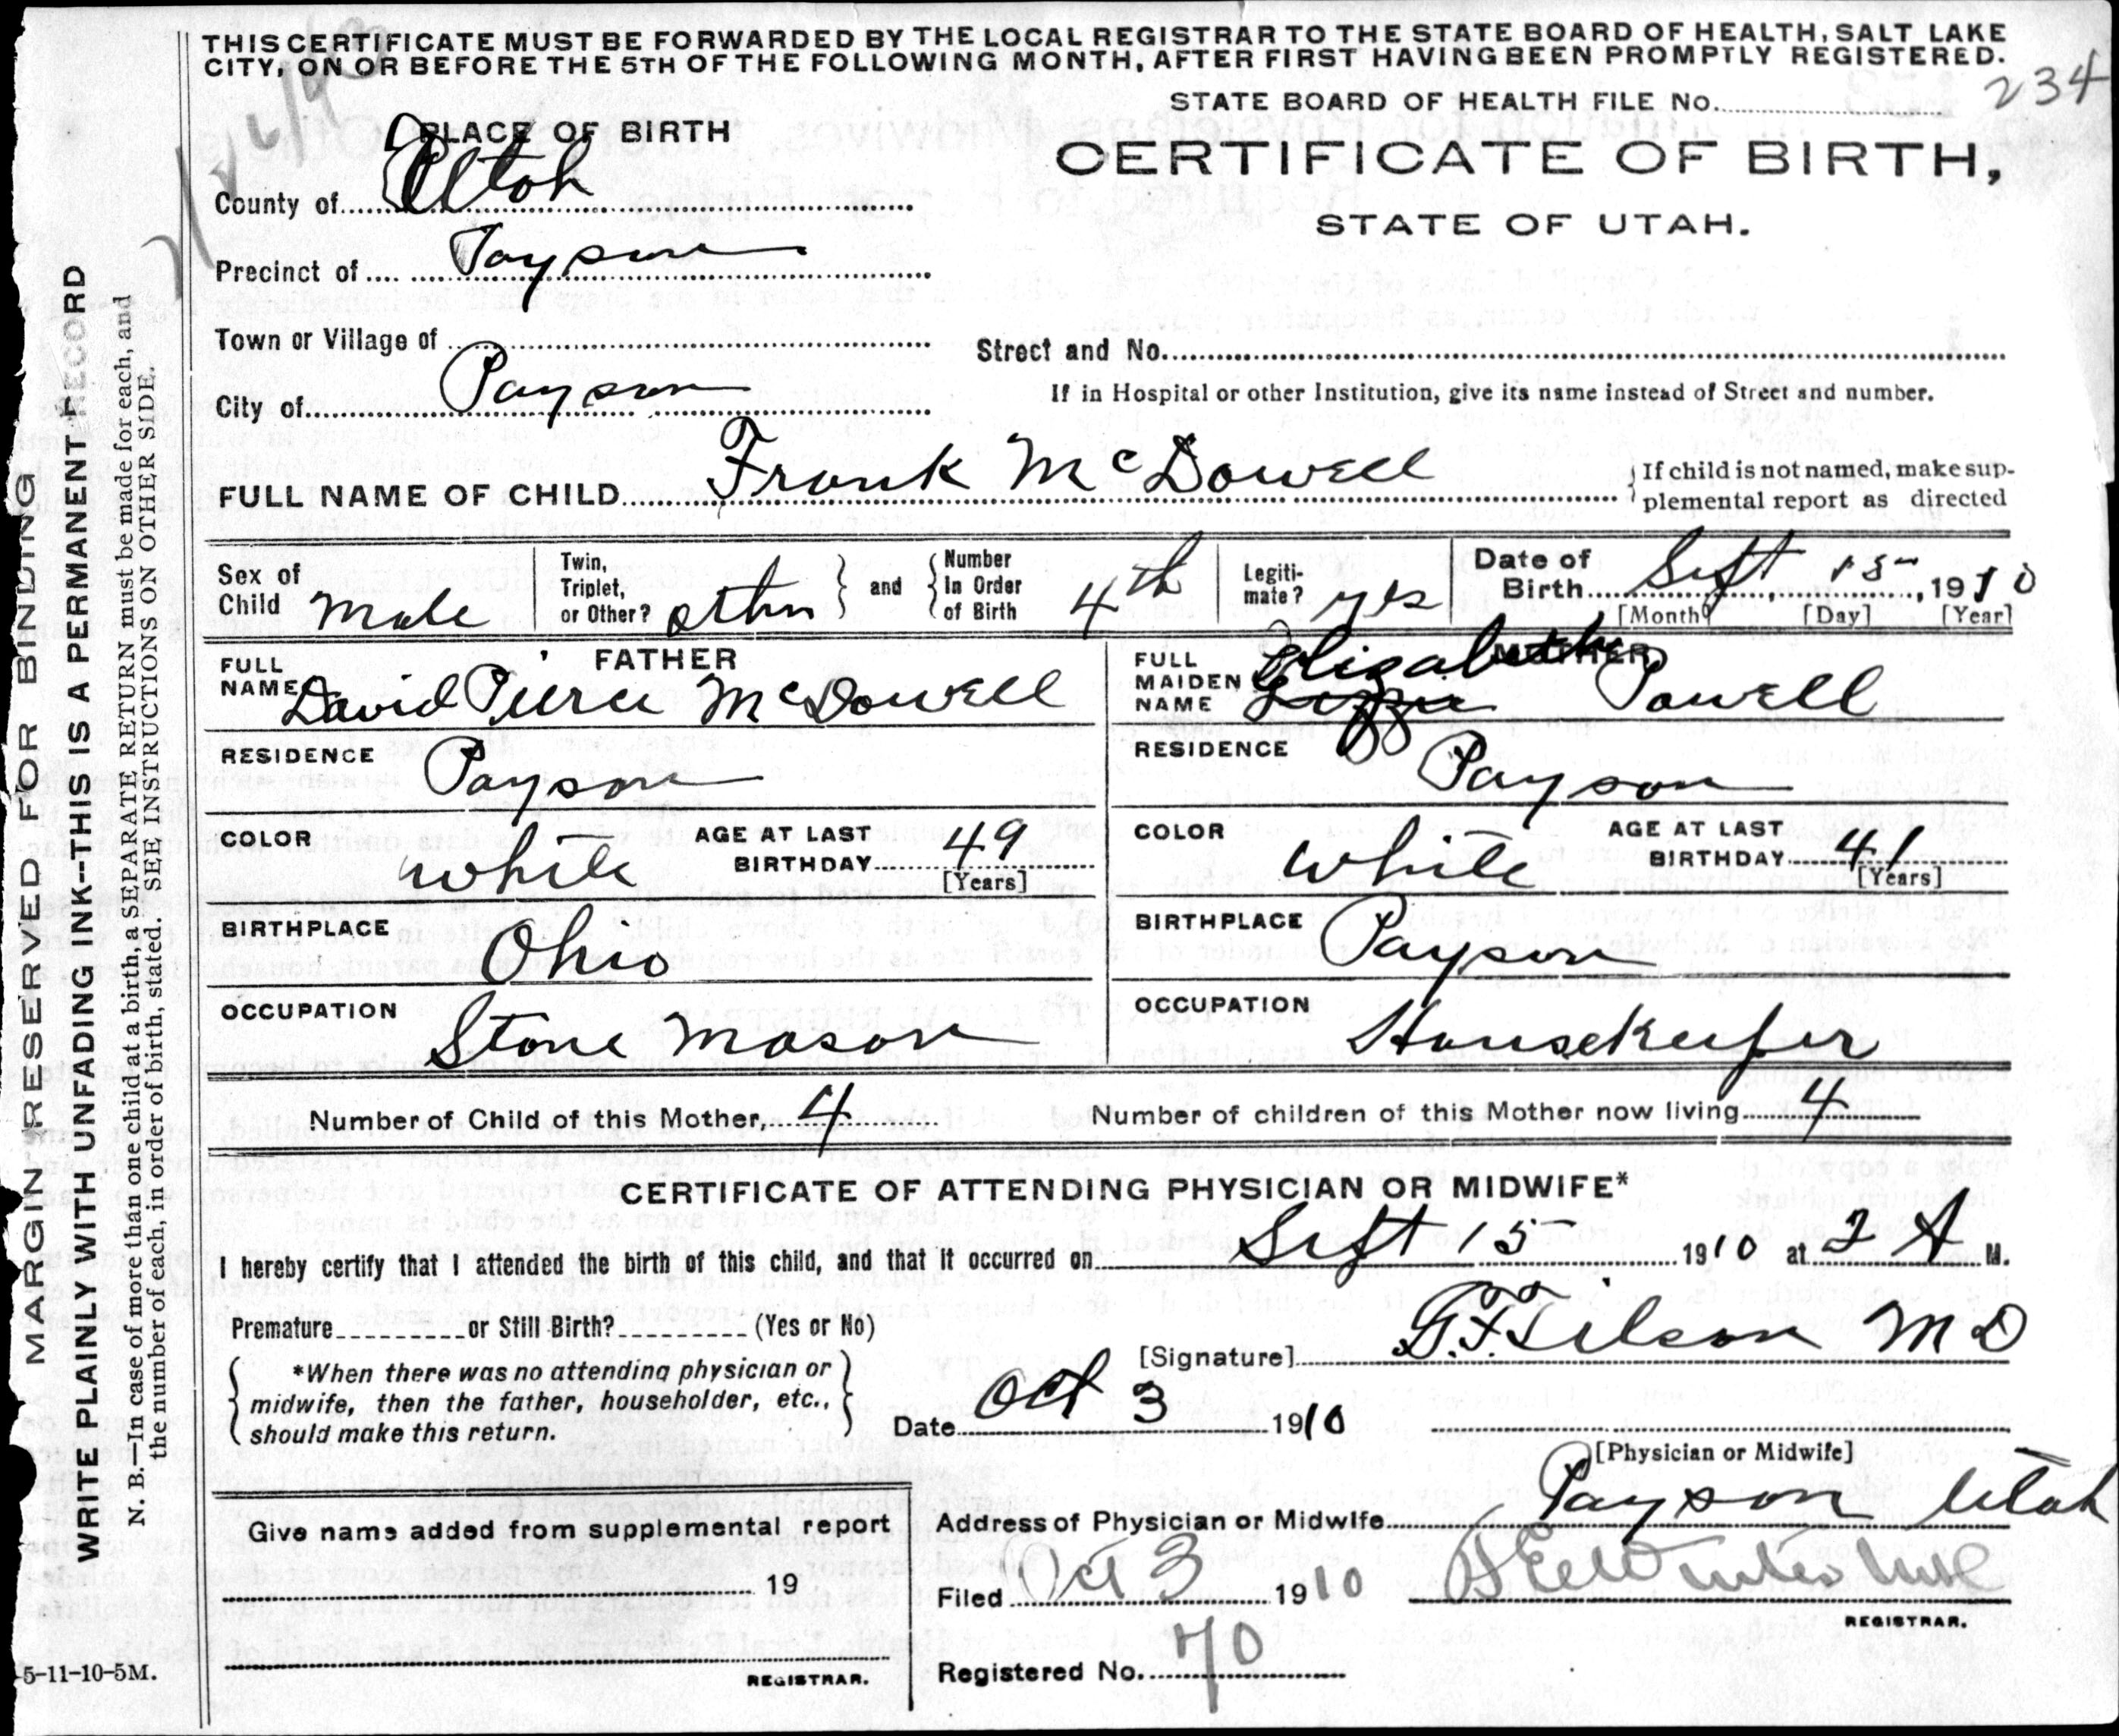 THIS CERTIFICATE MUST BE FORWARDED BY THE LOCAL REGISTRAR TO THE STATE BOARD OF HEALTH, SALT LAKE
CITY, ON OR BEFORE THE 5TH OF THE FOLLOWING MONTH, AFTER FIRST HAVING BEEN PROMPTLY REGISTERED.
234
STATE BOARD OF HEALTH FILE No.
PLACE OF BIRTH
CERTIFICATE OF BIRTH,
STATE OF UTAH.
County of Utah
Precinct of Payson
Town or Village of
Street and No.
City of Payson
If in Hospital or other Institution, give its name instead of Street and number.
FULL NAME OF CHILD Frank McDowell
If child is not named, make sup-
plemental report as directed
Sex of Child Male
Twin, Triplet, or Other? other and Number In Order of Birth 4th
Legiti-mate? yes
Date of Birth Sept 15, 1910
[Month] [Day] [Year]
FATHER
FULL NAME David Pierce McDowell
RESIDENCE Payson
COLOR White AGE AT LAST BIRTHDAY 49 [Years]
BIRTHPLACE Ohio
OCCUPATION Stone Mason
MOTHER
FULL MAIDEN NAME Elizabeth Lizzie Powell
RESIDENCE Payson
COLOR White AGE AT LAST BIRTHDAY 41 [Years]
BIRTHPLACE Payson
OCCUPATION Housekeeper
Number of Child of this Mother, 4 Number of children of this Mother now living 4
CERTIFICATE OF ATTENDING PHYSICIAN OR MIDWIFE*
I hereby certify that I attended the birth of this child, and that it occurred on Sept 15 1910 at 2 A M.
Premature or Still Birth? (Yes or No)
*When there was no attending physician or
midwife, then the father, householder, etc.,
should make this return.
[Signature] M D
Date Oct 3 1910
[Physician or Midwife]
Address of Physician or Midwife Payson Utah
Give name added from supplemental report
19
REGISTRAR.
Filed Oct 3 1910
REGISTRAR.
Registered No. 70
5-11-10-5M.
MARGIN RESERVED FOR BINDING
WRITE PLAINLY WITH UNFADING INK--THIS IS A PERMANENT RECORD
N. B.—In case of more than one child at a birth, a SEPARATE RETURN must be made for each, and
the number of each, in order of birth, stated. SEE INSTRUCTIONS ON OTHER SIDE.